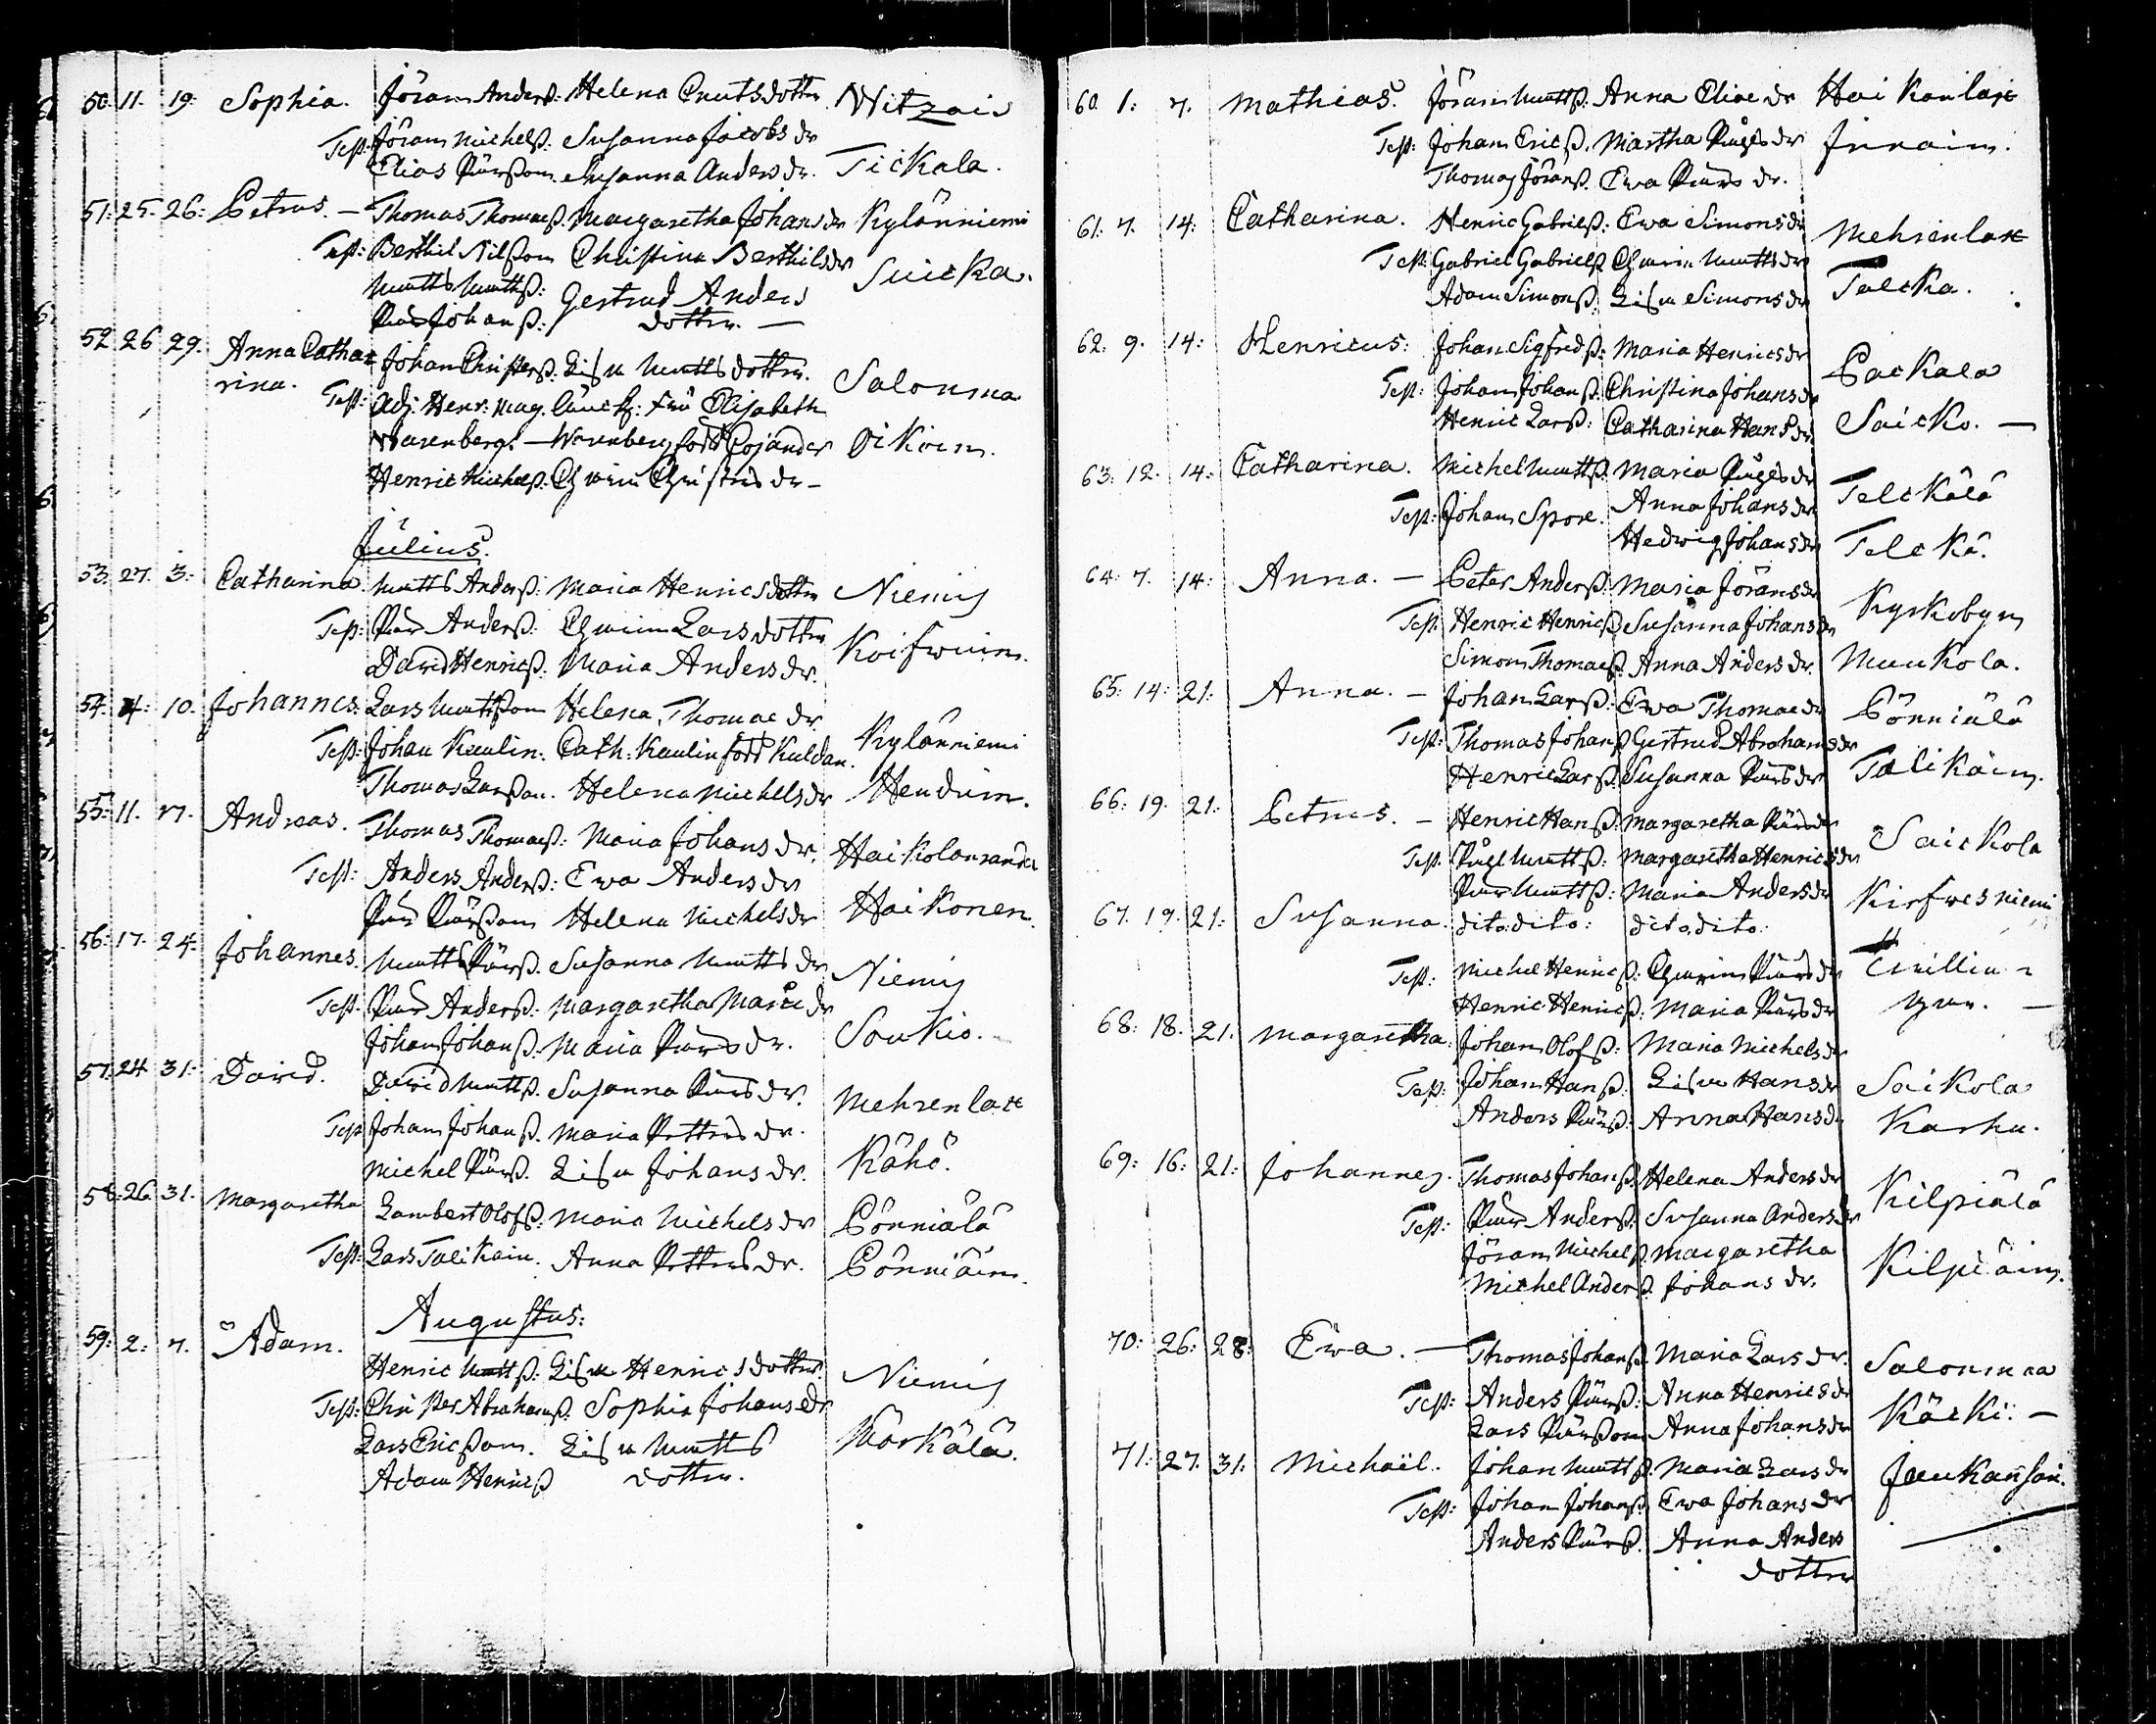 50. 11. 19. Sophia. Jöran Anderß: Helena Cnutsdotter Witzais
Teß: Jöran Michelß: Susanna Jacobs dr
Elias Pärßon. Susanna Anders dr. Tickala.
51. 25. 26: Petrus. — Thomas Thomaeß: Margaretha Johans dr Kylänniemi
Teß: Berthil Nilßon Christina Berthilsdr Suicka.
Matts Mattß: Gertrud Anders
Pär Johanß: dotter. —
52 26 29. Anna Catha= Johan Christerß: Lisa Matts dotter. Salonma
rina. Teß: Adj. Henr: Mag. Fru Elisabeth
Warenberg. — Warenberg född Cojander Oikoin.
Henric Michelß: Catharin Christers dr —
Julius.
53. 27. 3: Catharina. Matts Anderß: Maria Henricsdotter Niemis
Teß: Pär Anderß: Catharin Lars dotter
David Henricß: Maria Anders dr. Koifwuin.
54. 4: 10. Johannes. Lars Mattßon Helena Thomae dr Kylänniemi
Teß: Johan Kaulin. Cath: Kaulin född Kuldan.
Thomas Larßon. Helena Michelsdr Hendun.
55: 11. 17. Andreas. Thomas Thomaeß: Maria Johans dr. Haikolanranda
Teß: Anders Anderß: Ewa Anders dr
Pär Pärßon Helena Michelsdr Haikonen.
56: 17. 24: Johannes. Matts Pärß. Susanna Matts dr Niemis
Teß: Pär Anderß. Margaretha Marc dr
Johan Johanß: Maria Pärs dr. Soukio.
57. 24 31: David. David Mattß. Susanna Pärs dr. Mehrenlax
Teß Johan Johanß. Maria Petters dr.
Michel Pärß. Lisa Johans dr. Kähö.
58: 26. 31. Margaretha Lambert Olofß: Maria Michels dr Pönniälä
Teß: Lars Talikain. Anna Petters dr. Pönniäin.
Augustus:
59: 2. 7. Adam. Henric Mattß. Lisa Henricsdotter. Niemis
Teß: Christer Abrahamß. Sophia Johans dr
Lars Ericßon. Lisa Matts Märkälä.
Adam Henricß dotter.
60. 1. 7. Mathias. Jöran Mattß. Anna Eliae dr Haikanlax
Teß: Johan Ericß. Martha Pågls dr Innain.
Thomas Jöranß. Ewa Pärs dr.
61. 7. 14: Catharina. Henric Gabrielß: Ewa Simonsdr Mehrenlax
Teß: Gabriel Gabrielß Catharin Mattsdr
Adam Simonß: Lisa Simonsdr Talcka.
62: 9. 14: Henricus: Johan Sigfredß: Maria Henricsdr Packala
Teß: Johan Johanß: Christina Johansdr
Henric Larß: Catharina Hansdr Saicko. —
63: 12. 14: Catharina. Michel Mattß. Maria Pågls dr Telckälä
Teß: Johan Spore. Anna Johansdr
Hedwig Johansdr Telckä.
64: 7. 14: Anna. — Peter Anderß: Maria Jöransdr Kyrkobyn
Teß: Henric Henricß Susanna Johansdr
Simon Thomaeß: Anna Anders dr. Muukola.
65: 14: 21: Anna. — Johan Larß: Ewa Thomaedr Pönniälä
Teß: Thomas Johanß Gertrud Abrahamsdr
Henric Larß: Susanna Pärsdr Talikain.
66: 19. 21: Petrus. — Henric Hanß. Margaretha Pärsdr Saickola
Teß: Pågl Mattß: Margaretha Henricsdr
Pär Mattß: Maria Andersdr Kirfwesniemi
67. 19. 21: Susanna. dito dito: dito dito.
Teß: Michel Henricß. Catharin Pärsdr
Henric Henricß: Maria Pärsdr
68: 18. 21: Margaretha. Johan Olofß: Maria Michelsdr
Teß: Johan Hanß. Lisa Hansdr Saikola
Anders Pärß: Anna Hansdr Karhu.
69: 16: 21: Johannes. Thomas Johanß Helena Andersdr Kilpiälä
Teß: Pär Anderß: Susanna Andersdr
Jöran Michelß. Margaretha
Michel Anderß. Johans dr. Kilpiäin.
70: 26: 28: Ewa. — Thomas Johanß Maria Lars dr. Salonmaa
Teß: Anders Pärß: Anna Henricsdr
Lars Pärßon Anna Johansdr Käcki. —
71: 27. 31: Michaël. Johan Mattß Maria Larsdr Jaukansari.
Teß: Johan Johanß: Ewa Johansdr
Anders Pärß. Anna Anders
dotter